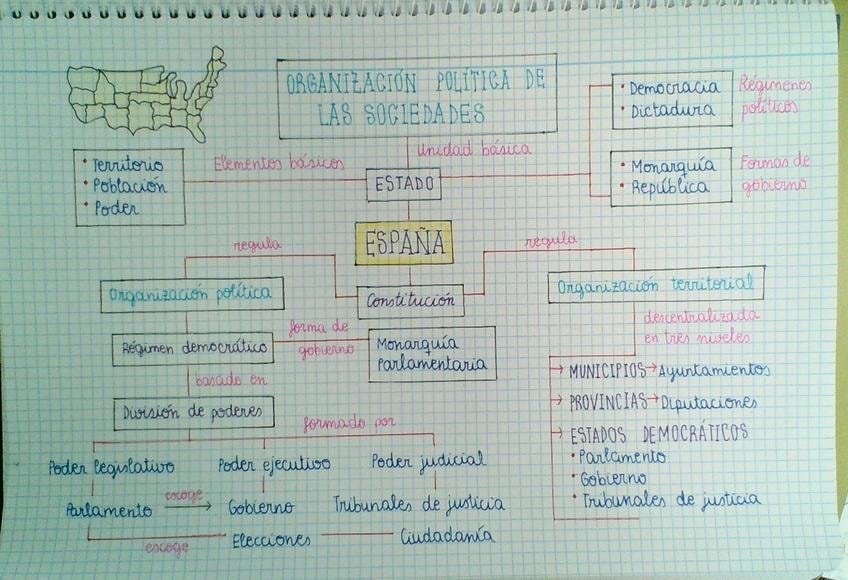 ORGANIZACIÓN POLÍTICA DE
LAS SOCIEDADES
• Democracia
• Dictadura
Régimenes
políticos
unidad básica
• Territorio
• Población
• Poder
Elementos básicos
ESTADO
• Monarquía
• República
Formas de
gobierno
ESPAÑA
regula
regula
Organización política
Constitución
Organización territorial
descentralizada
en tres niveles
Régimen democrático
forma de
gobierno
Monarquía
Parlamentaria
basado en
División de poderes
MUNICIPIOS → Ayuntamientos
PROVINCIAS → Diputaciones
ESTADOS DEMOCRÁTICOS
• Parlamento
• Gobierno
• Tribunales de justicia
formado por
Poder legislativo
Poder ejecutivo
Poder judicial
Parlamento
escoge
Gobierno
Tribunales de justicia
escoge
Elecciones
Ciudadanía